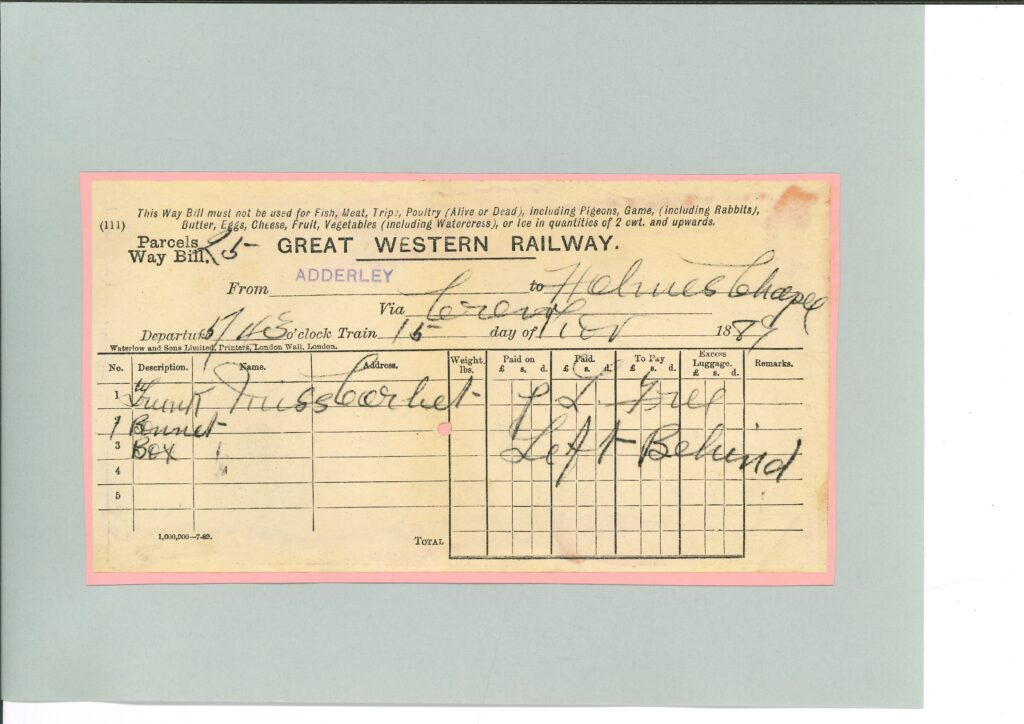 This Way Bill must not be used for Fish, Meat, Tripe, Poultry (Alive or Dead), including Pigeons, Game, (including Rabbits),
(111) Butter, Eggs, Cheese, Fruit, Vegetables (including Watercress), or Ice in quantities of 2 cwt. and upwards.
Parcels Way Bill. 25 GREAT WESTERN RAILWAY.
From ADDERLEY to Holmes Chapel
Via Crewe
Departure o'clock Train 15 day of Nov 1889
Waterlow and Sons Limited, Printers, London Wall, London.
No. Description. Name. Address. Weight. lbs. Paid on £ s. d. Paid. £ s. d. To Pay £ s. d. Excess Luggage. £ s. d. Remarks.
1 Trunk Miss Corbet P L Free
1 Bonnet Left Behind
3 Box
4
5
1,000,000—7-89. TOTAL